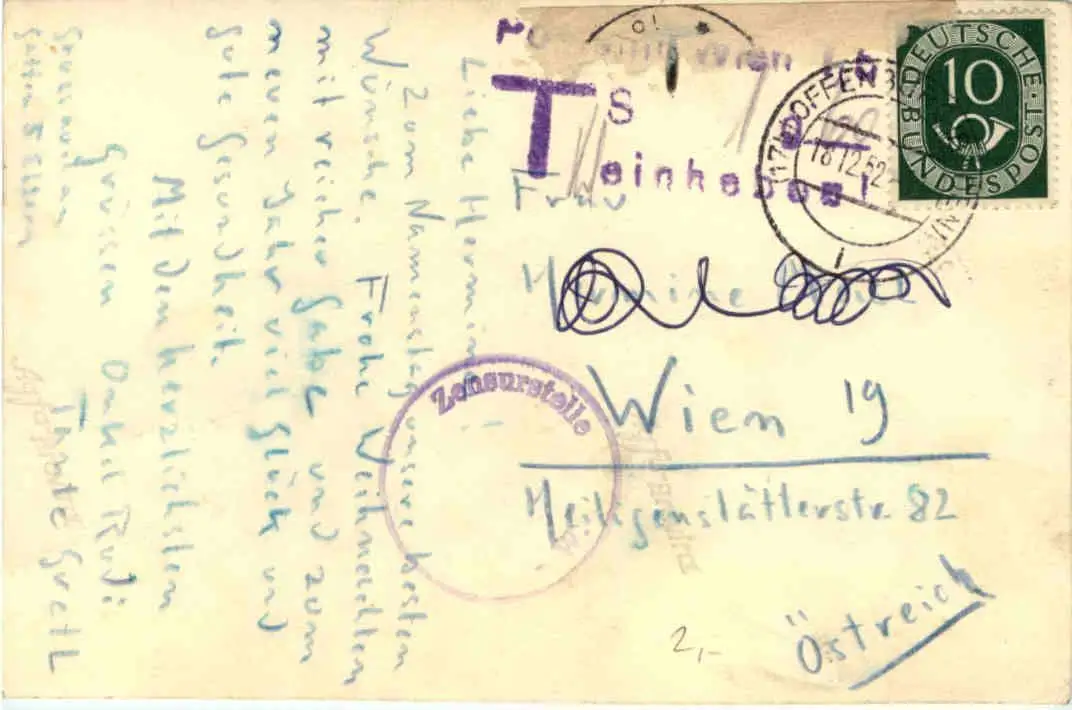 Liebe Hermine!
Zum Namenstag unsere besten
Wünsche. Frohe Weihnachten
mit reicher Gabe und zum
neuen Jahr viel Glück und
gute Gesundheit.
Mit den herzlichsten
Grüssen Onkel Rudi
Tante Gretl
Wien
T S
einheben!
DEUTSCHE
BUNDESPOST
10
(17a) OFFENB
18.12.52
Frau
Hermine
Wien 19
Heiligenstätterstr. 82
Östreich
Zensurstelle
2,-